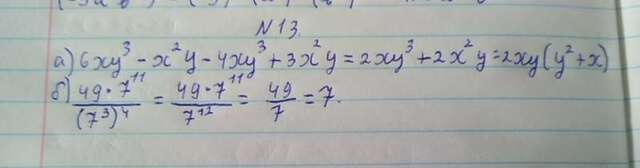 N13.
а) 6xy³ - x²y - 4xy³ + 3x²y = 2xy³ + 2x²y = 2xy(y² + x)
б) 49 · 7¹¹ / (7³)⁴ = 49 · 7¹¹ / 7¹² = 49 / 7 = 7.